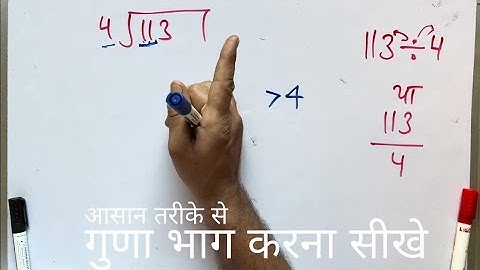 4 113
113 ÷ 4
>4
या
113
4
आसान तरीके से
गुणा भाग करना सीखे